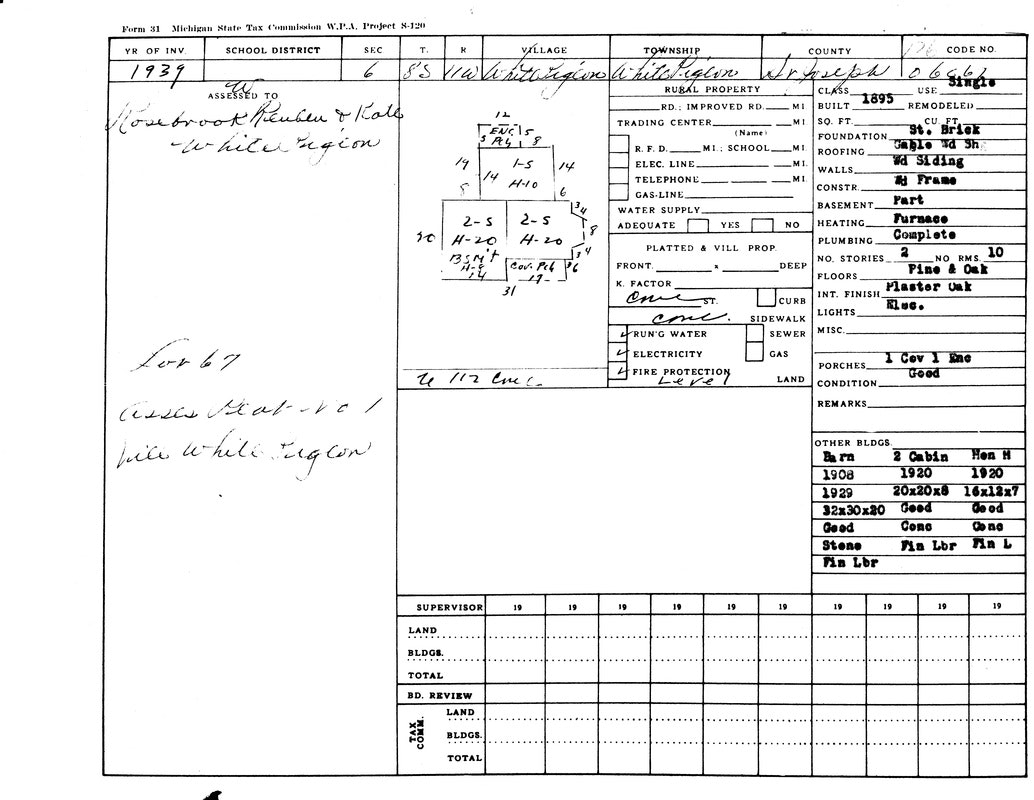 Form 31 Michigan State Tax Commission W.P.A. Project S-120
YR OF INV. SCHOOL DISTRICT SEC T. R VILLAGE TOWNSHIP COUNTY CODE NO.
1939 6 8'S 11W White Pigeon White Pigeon St Joseph
ASSESSED TO
Rosebrook Reuben & Kate
White Pigeon
Lot 67
Asses Plat - No 1
Vill White Pigeon
12
ENC 5
Pch 8
19 1-S 14
14 H-10
8 6
2-S 2-S
H-20 H-20
3 4
8
3 4
20
BSM't
H-9
14
Cov. Pch 6
17
31
112 Conc.
RURAL PROPERTY
RD.; IMPROVED RD. MI.
TRADING CENTER MI.
(Name)
R. F. D. MI.; SCHOOL MI.
ELEC. LINE MI.
TELEPHONE MI.
GAS-LINE
WATER SUPPLY
ADEQUATE YES NO
PLATTED & VILL PROP.
FRONT. x DEEP
K. FACTOR
Conc ST. CURB
conc. SIDEWALK
✓ RUN'G WATER SEWER
✓ ELECTRICITY GAS
✓ FIRE PROTECTION
Level LAND
CLASS USE Single
BUILT 1895 REMODELED
SQ. FT. CU. FT.
FOUNDATION St. Brick
ROOFING Gable Wd Sh
WALLS Wd Siding
CONSTR. Wd Frame
BASEMENT Part
HEATING Furnace
PLUMBING Complete
NO. STORIES 2 NO RMS. 10
FLOORS Pine & Oak
INT. FINISH Plaster Oak
LIGHTS Elec.
MISC.
PORCHES 1 Cov 1 Enc
CONDITION Good
REMARKS
OTHER BLDGS.
Barn 2 Cabin Hen H
1908 1920 1920
1929 20x20x8 16x12x7
32x30x20 Good Good
Good Conc Conc
Stone Fin Lbr Fin L
Fin Lbr
SUPERVISOR 19 19 19 19 19 19 19 19 19 19
LAND
BLDGS.
TOTAL
BD. REVIEW
TAX COMM.
LAND
BLDGS.
TOTAL